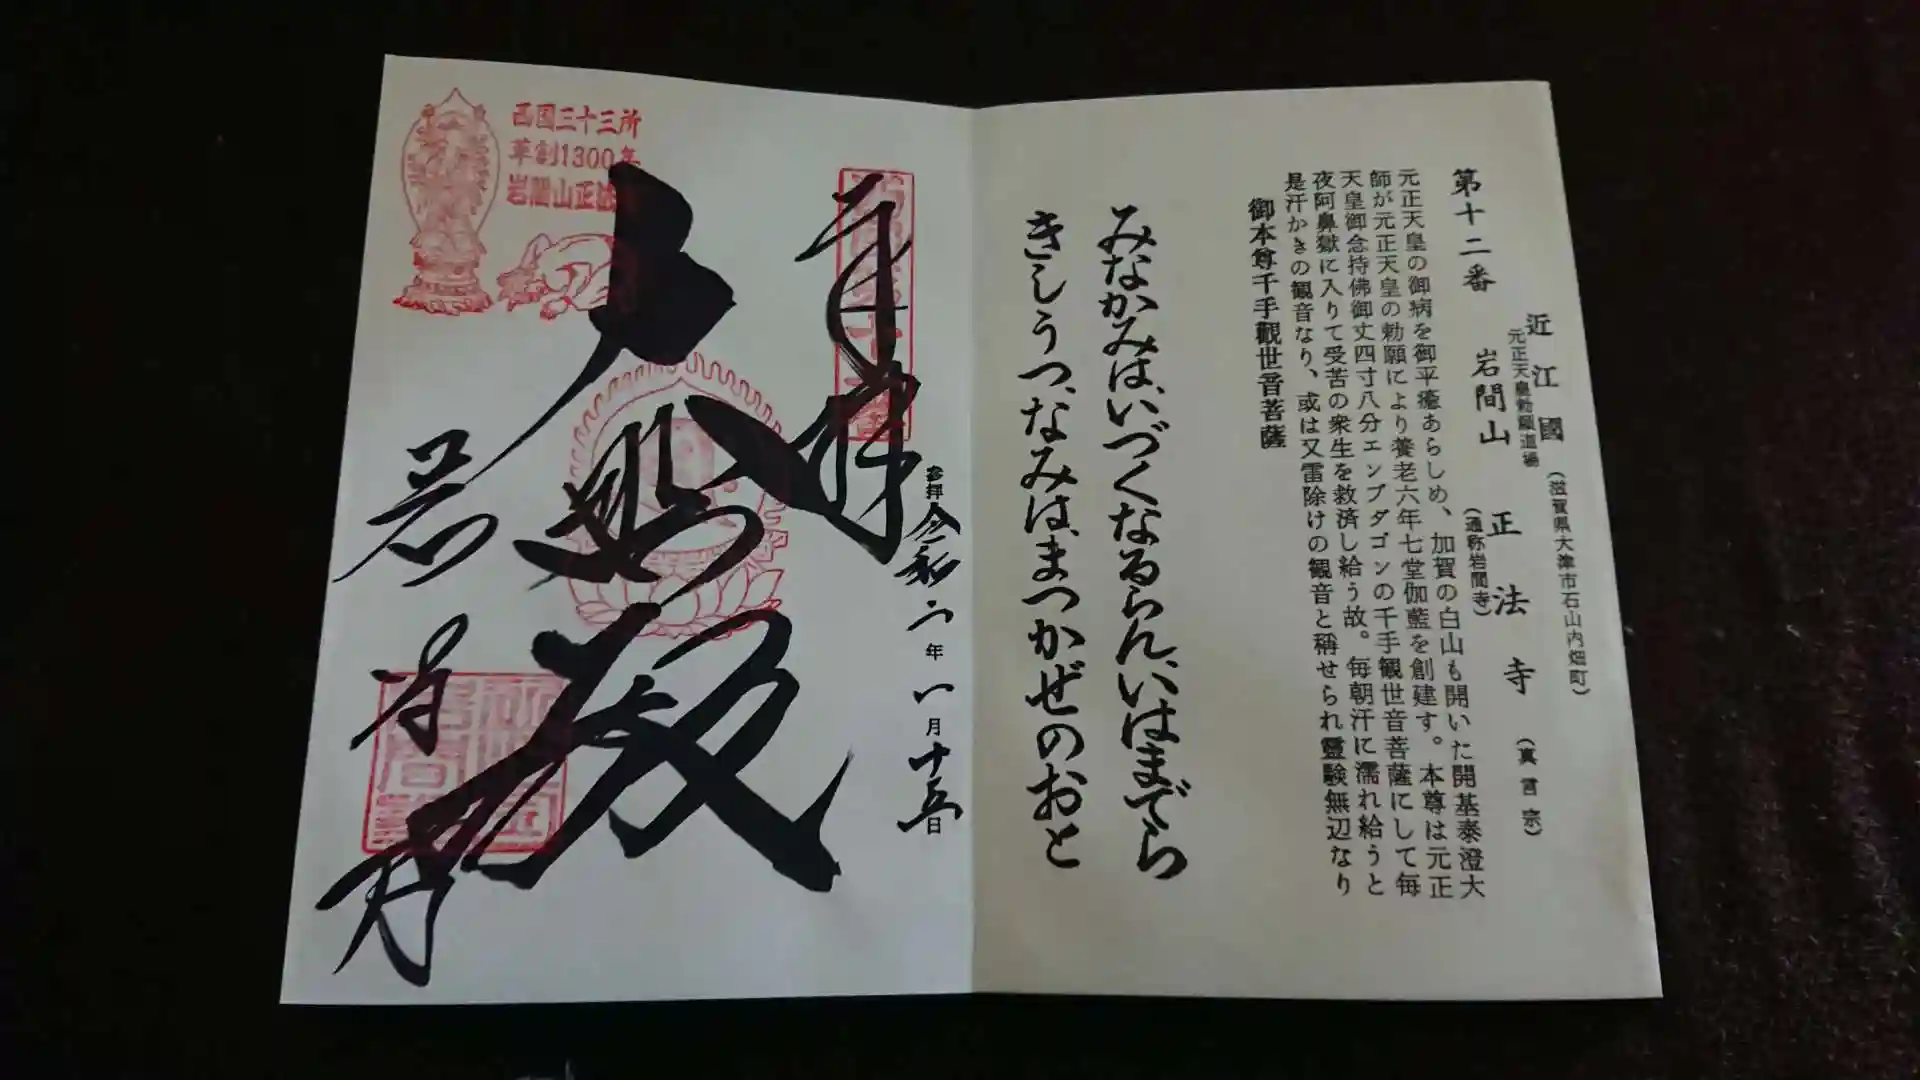 近江國(滋賀県大津市石山内畑町)
元正天皇勅願道場
第十二番 岩間山 正法寺(真言宗)
(通称岩間寺)
元正天皇の御病を御平癒あらしめ、加賀の白山も開いた開基泰澄大
師が元正天皇の勅願により養老六年七堂伽藍を創建す。本尊は元正
天皇御念持佛御丈四寸八分エンブダゴンの千手観世音菩薩にして毎
夜阿鼻獄に入りて受苦の衆生を救済し給う故。毎朝汗に濡れ給うと
是汗かきの観音なり、或は又雷除けの観音と稱せられ靈験無辺なり
御本尊千手觀世音菩薩
みなかみは、いづくなるらん、いはまでら
きしうつ、なみは、まつかぜのおと
参拝令和六年八月十五日
奉拝
大悲殿
岩間寺
西国三十三所
草創1300年
岩間山正法